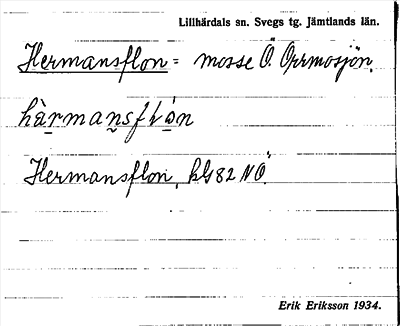 Lillhärdals sn. Svegs tg. Jämtlands län.
Hermansflon = mosse Ö. Orrmosjön.
hèrmansflón
Hermansflon, kbl 82 NÖ.
Erik Eriksson 1934.